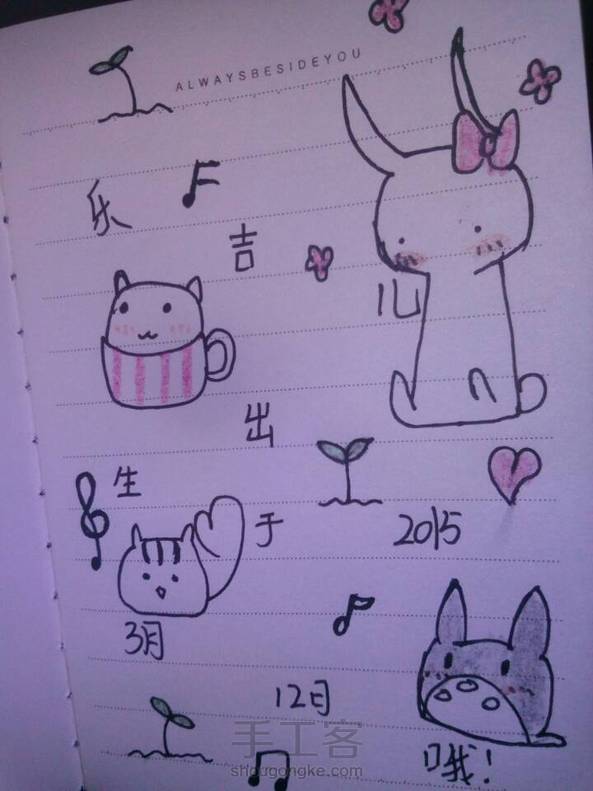 ALWAYSBESIDEYOU
乐
吉
儿
出
生
于
2015
3月
12日
哦！
手工客
shougongke.com